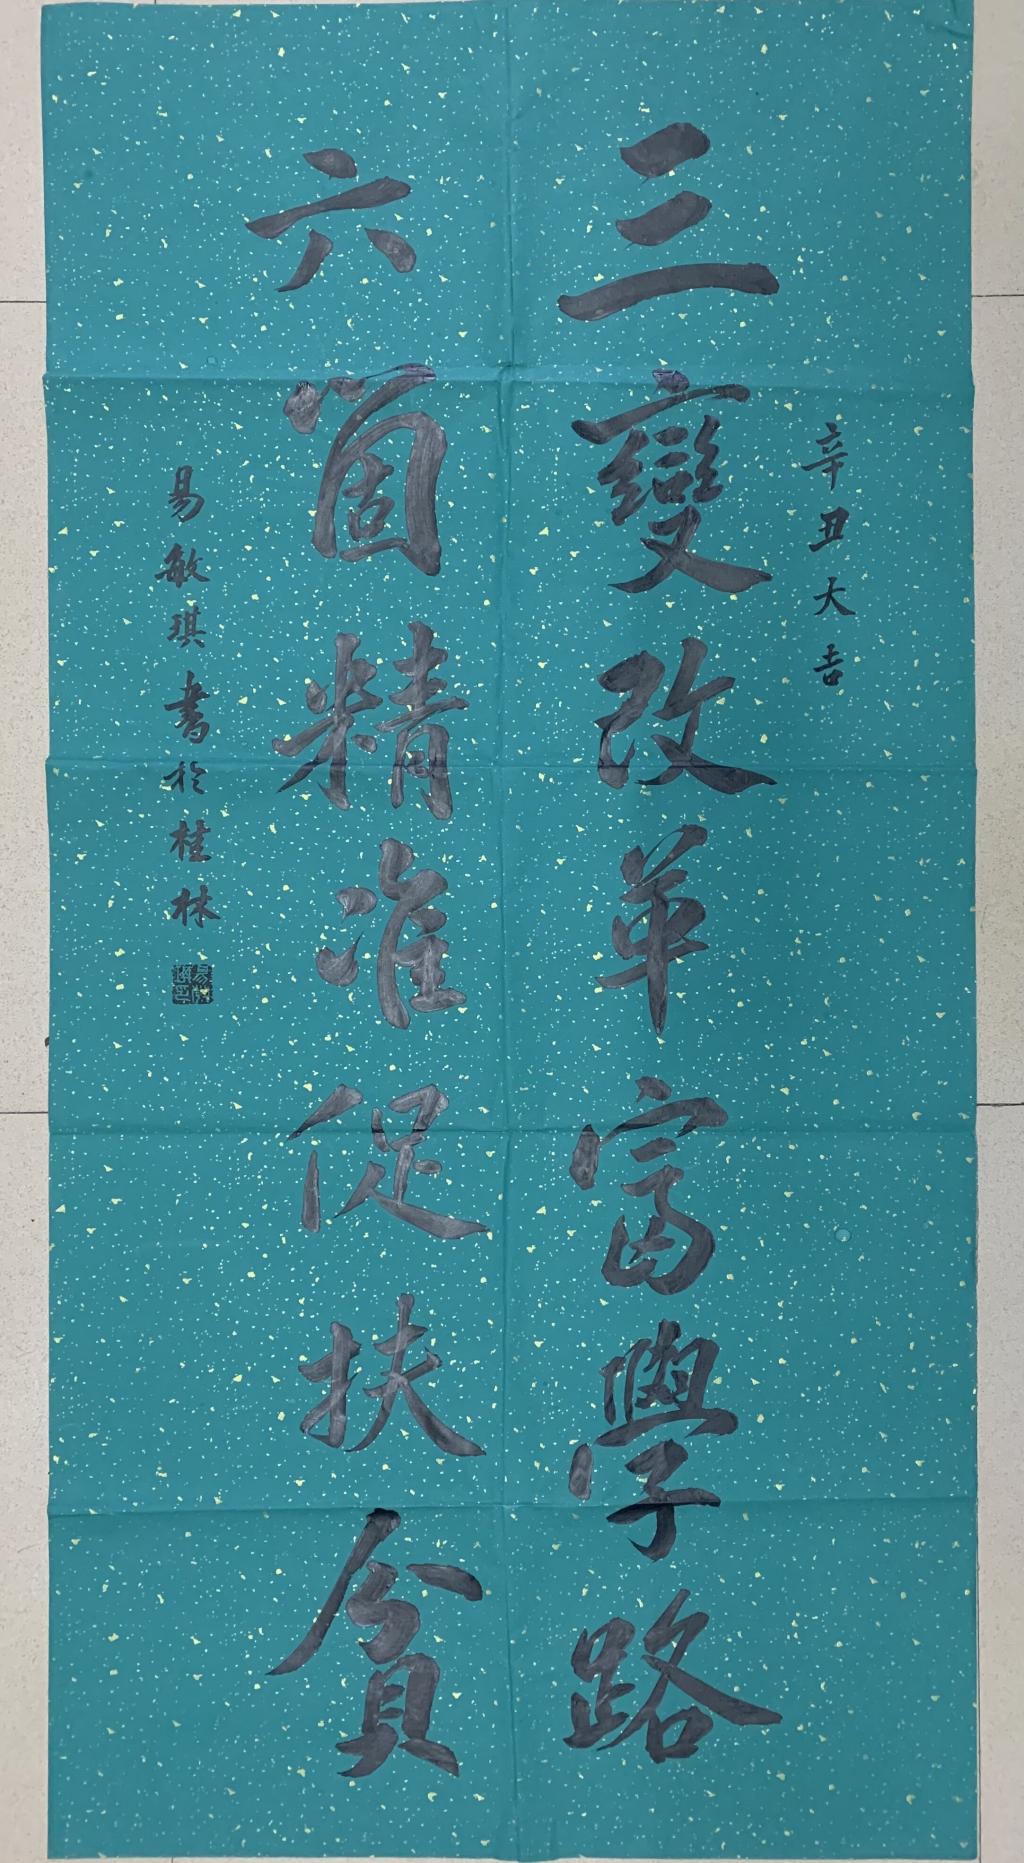 辛丑大吉
三變改革富學路
六箇精准促扶貧
易敏琪書於桂林